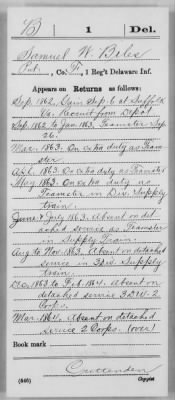 B 1 Del.
Samuel W. Biles
Pvt., Co. F, 1 Reg't Delaware Inf.
Appears on Returns as follows:
Sep. 1862, Gain Sep. 6 at Suffolk
Va. Recruit from Depot
Sep. 1862 to Jan. 1863, Teamster Sep.
26.
Mar. 1863. On extra duty as Team-
ster
Apl. 1863. On extra duty as Teamster
May 1863. On extra duty as
Teamster in Div. Supply
train.
June & July 1863. Absent on det
ached service as Teamster
in Supply Train.
Aug to Nov. 1863. Absent on detached
service in 3 Div. Supply
train.
Dec. 1863 to Feb. 1864. Absent on
detached service 3 Div. 2
Corps.
Mar. 1864. Absent on detached
service 2 Corps. (over)
Book mark
Crittenden
(546) Copyist